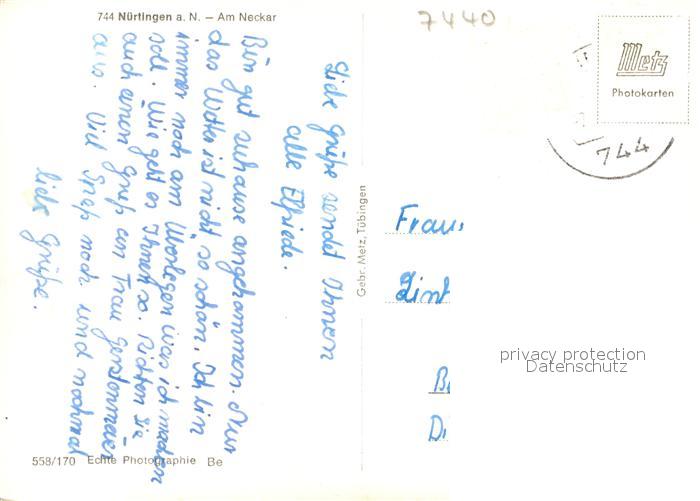 744 Nürtingen a. N. — Am Neckar
7440
Metz
Photokarten
744
Liebe Grüße sendet Ihnen
alle Elfriede.
Bin gut zuhause angekommen. Nur
das Wetter ist nicht so schön. Ich bin
immer noch am Überlegen was ich machen
soll. Wie geht es Ihnen so. Richten Sie
auch einen Gruß an Frau Gerstenmaier
aus. Viel Spaß noch und nochmal
liebe Grüße.
Gebr. Metz, Tübingen
Frau
Zint
B
D
privacy protection
Datenschutz
558/170 Echte Photographie Be